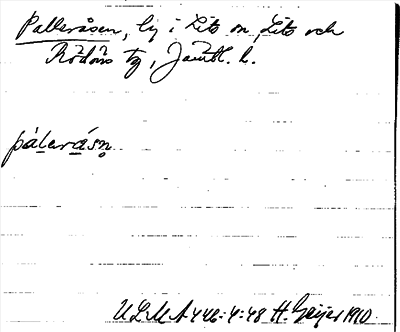 Palleråsen, by i Lits sn, Lits och
Rödöns tg, Jämtl. l.
pálerásn̥
ULMA 446:4:48 H. Geijer 1910